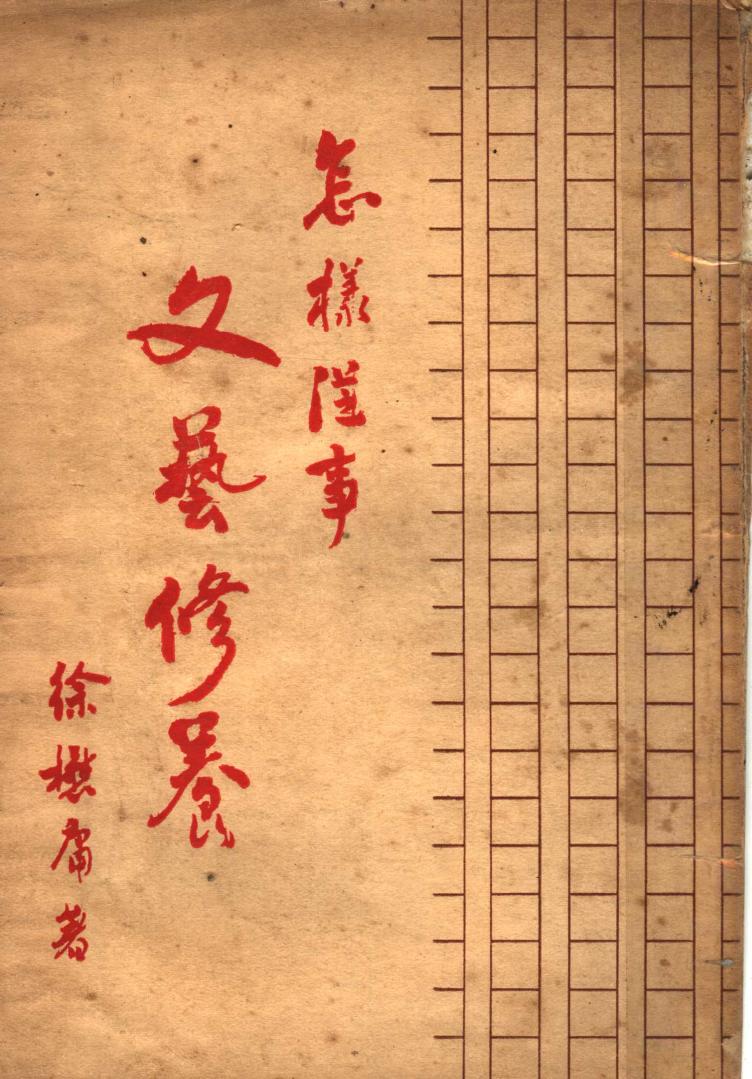 怎樣從事
文藝修養
徐懋庸著